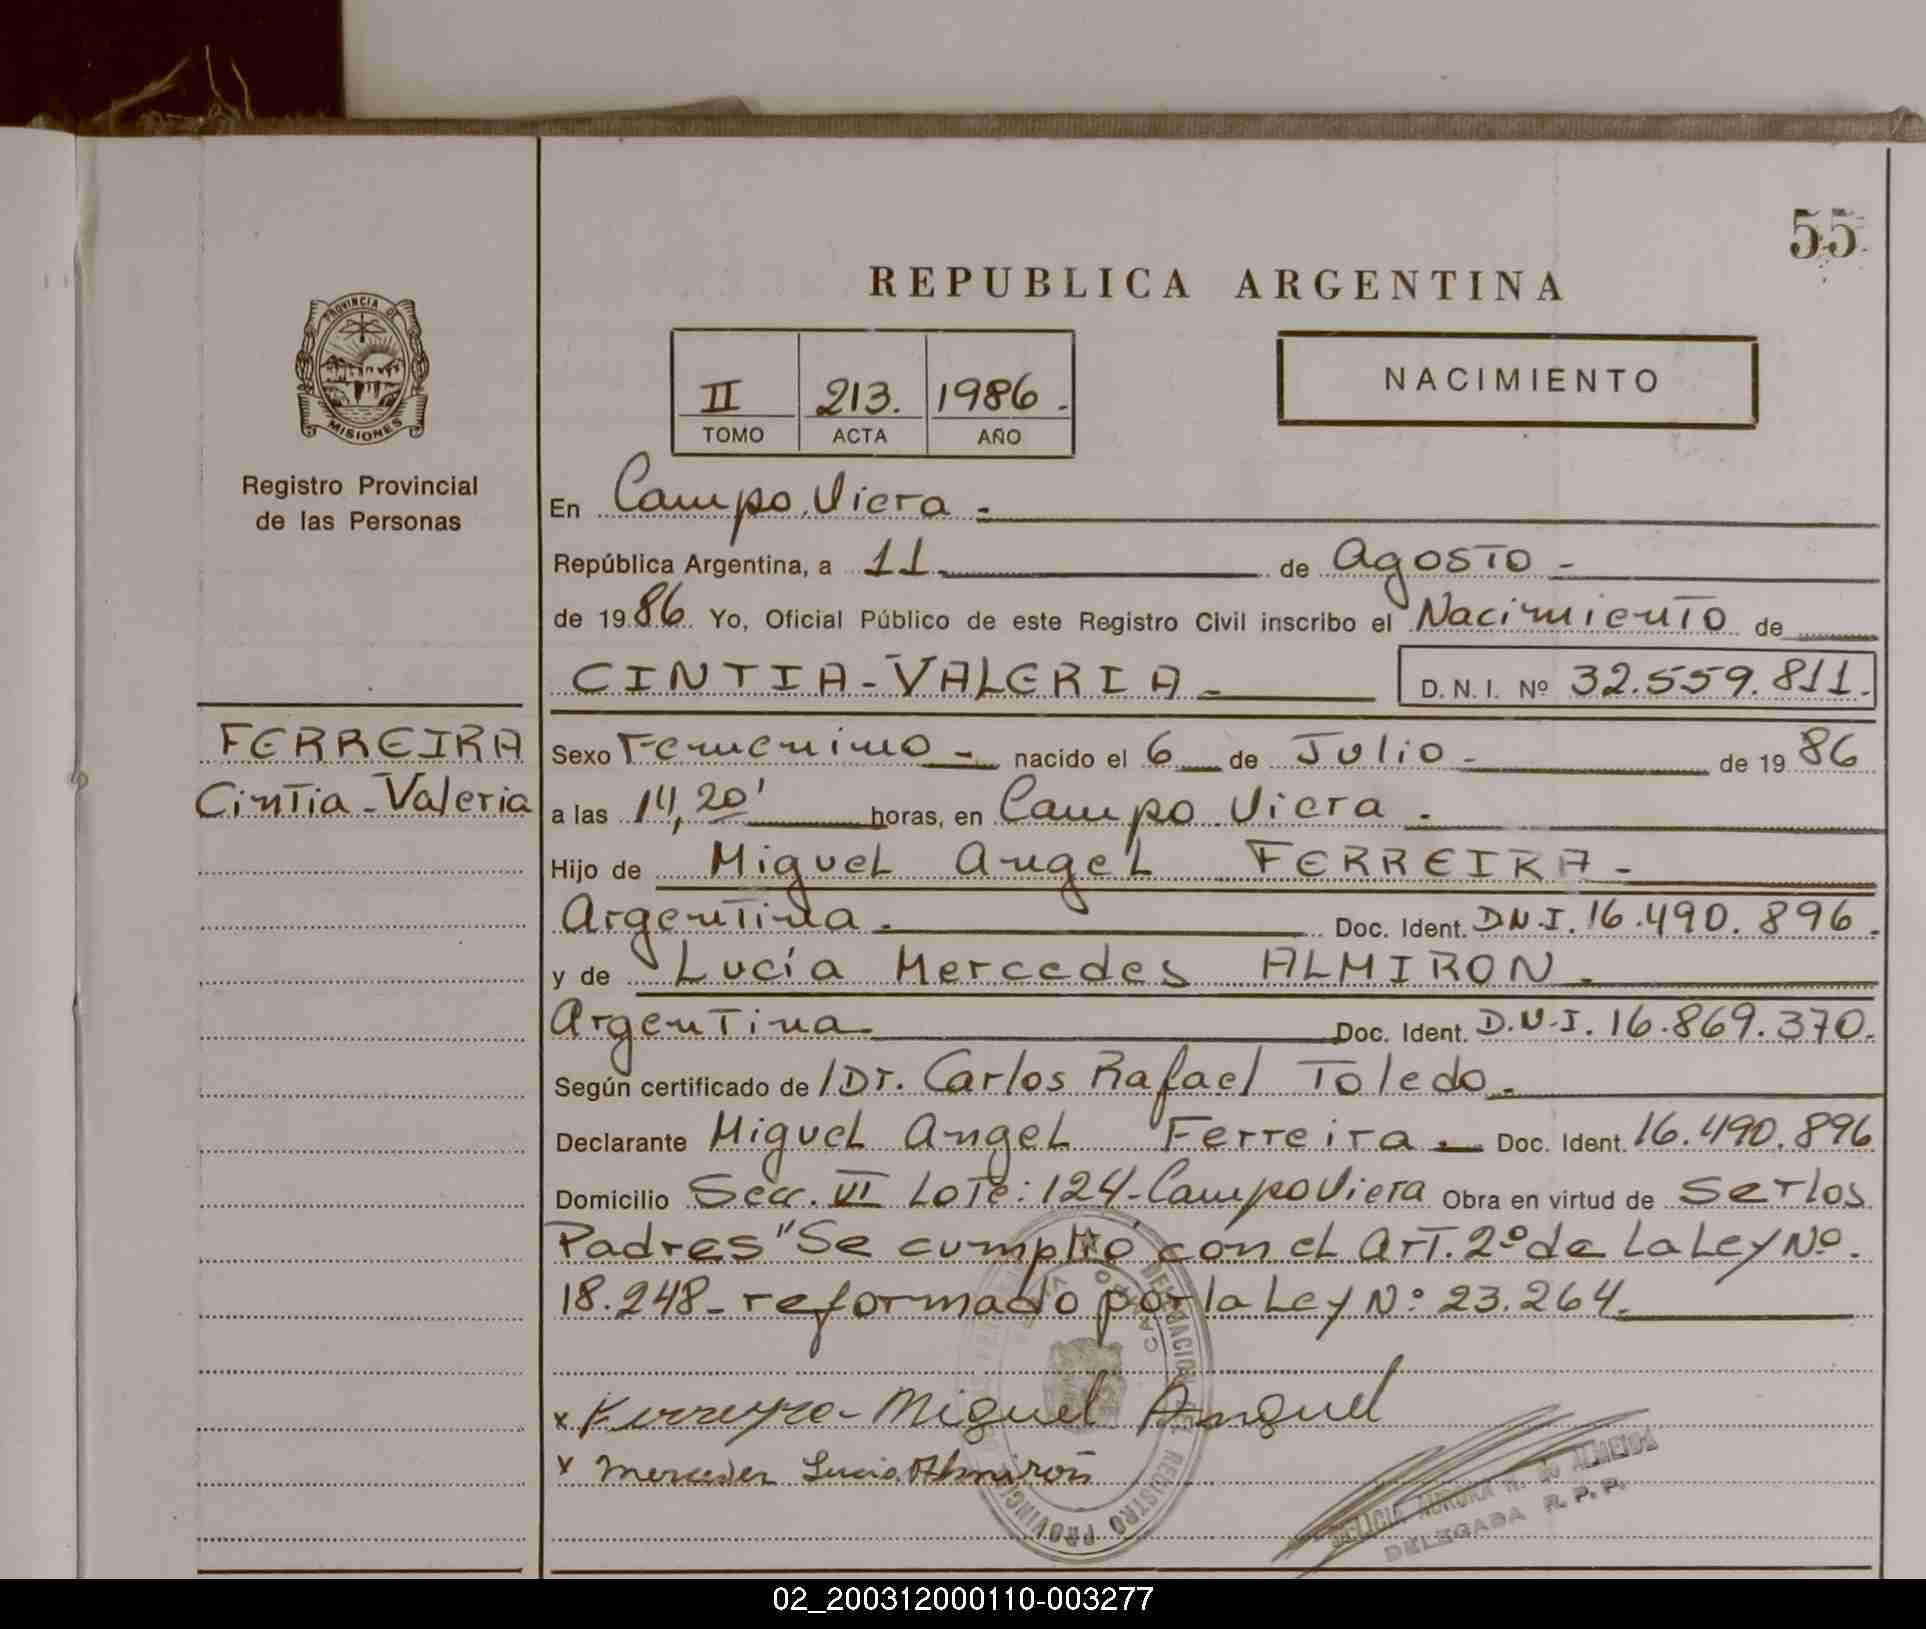 55
REPUBLICA ARGENTINA
PROVINCIA DE
MISIONES
Registro Provincial
de las Personas
II 213. 1986.-
TOMO ACTA AÑO
NACIMIENTO
En Campo Viera.-
República Argentina, a 11 de Agosto.-
de 1986 Yo, Oficial Público de este Registro Civil inscribo el Nacimiento de
CINTIA-VALERIA.- D.N.I. Nº 32.559.811.
FERREIRA
Cintia-Valeria
Sexo Femenino.- nacido el 6 de Julio.- de 1986
a las 14,20' horas, en Campo Viera.-
Hijo de Miguel Angel FERREIRA.-
Argentina.- Doc. Ident. D.N.I. 16.490.896.
y de Lucía Mercedes ALMIRON.-
Argentina.- Doc. Ident. D.N.I. 16.869.370.
Según certificado de /Dr. Carlos Rafael Toledo.-
Declarante Miguel Angel Ferreira.- Doc. Ident. 16.490.896
Domicilio Secc. VI Lote: 124-Campo Viera Obra en virtud de Ser los
Padres "Se cumplió con el Art. 2º de la Ley Nº.
18.248- reformado por la Ley Nº: 23.264.
x Ferreyra- Miguel Anguel
x Mercedes Lucia Almirón
DELEGACION DEL REGISTRO PROVINCIAL
CAMPO VIERA
AURORA
DE ALMEIDA
DELEGADA R.P.P.
02_200312000110-003277